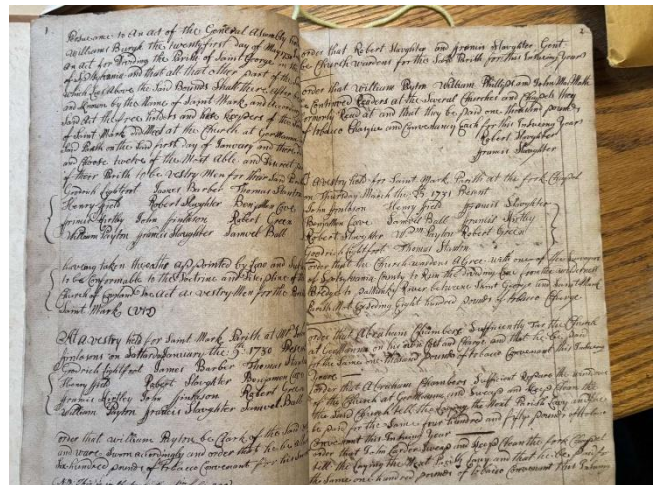 1
Pursuant to An act of the General Assembly
Williams Burgh the twenty first Day of May 1730
an act for Dividing the Parish of Saint George in the
of Spotsylvania and that all that other part of the
which Lies Above the Said Bounds Shall thereafter
and Known by the Name of Saint Mark and
Said Act the freeholders and house keepers of the
of Saint Mark did Meet at the Church at Germanna
Said Parish on the first day of January and there
and Choose twelve of the Most Able and Discreet
of their Parish to be Vestry Men for their Said Parish
Goodrich Lightfoot James Barber Thomas Stanton
Henry Field Robert Slaughter Benjamin Cave
Francis Kirtley John Finlason Robert Green
William Payton Francis Slaughter Samuel Ball
having taken the oaths appointed by Law and
to be Conformable to the Doctrine and Discipline of the
Church of England act as Vestry Men for the Parish
Saint Mark
At a vestry held for Saint Mark Parish at
on January the 1730
Goodrich Lightfoot James Barber Thomas Stanton
Henry Field Robert Slaughter Benjamin Cave
Francis Kirtley John Finlason Robert Green
William Payton Francis Slaughter Samuel Ball
order that William Payton be Clark of the Said
and was Sworn accordingly and order that he be
Six hundred pounds of tobacco Convenient for his
2
order that Robert Slaughter and Francis Slaughter Gent
be Church wardens for the Parish for this Insuing Year
order that William Payton William Phillips and John
be Continued Readers at the Several Churches and Chapels they
formerly Read at and that they be paid one thousand pounds
of tobacco Each for this Insuing Year
Robert Slaughter
Francis Slaughter
At a vestry held for Saint Mark Parish at the fork Chapel
on Thursday March the 1731 Present
John Finlason Henry Field Francis Slaughter
Benjamin Cave Samuel Ball Francis Kirtley
Robert Slaughter Wm Payton Robert Green
Goodrich Lightfoot Thomas Stanton
order that the Church wardens Agree with one of the Surveyors
of Spotsylvania County to Run the Dividing Line from the wilderness
Bridge to River between Saint George and Saint Mark
Parish Not Exceeding Eight hundred pounds of tobacco Charge
order that Abraham Chambers Sufficiently Tar the Church
at Germanna on his own Cost and Charge and that he be paid
for the Same one thousand pounds of tobacco Convenient this Insuing
order that Abraham Chambers Sufficient Repare the windows
of the Church at Germanna and Sweep and keep Clean the
the Said Church till the Laying the Next Parish Levy and
be paid for the Same four hundred and fifty pounds of tobacco
Convenient this Insuing Year
order that John Carder Sweep and keep Clean the fork Chappel
till the Laying the Next Parish Levy and that he be paid for
the Same one hundred pounds of tobacco Convenient this Insuing